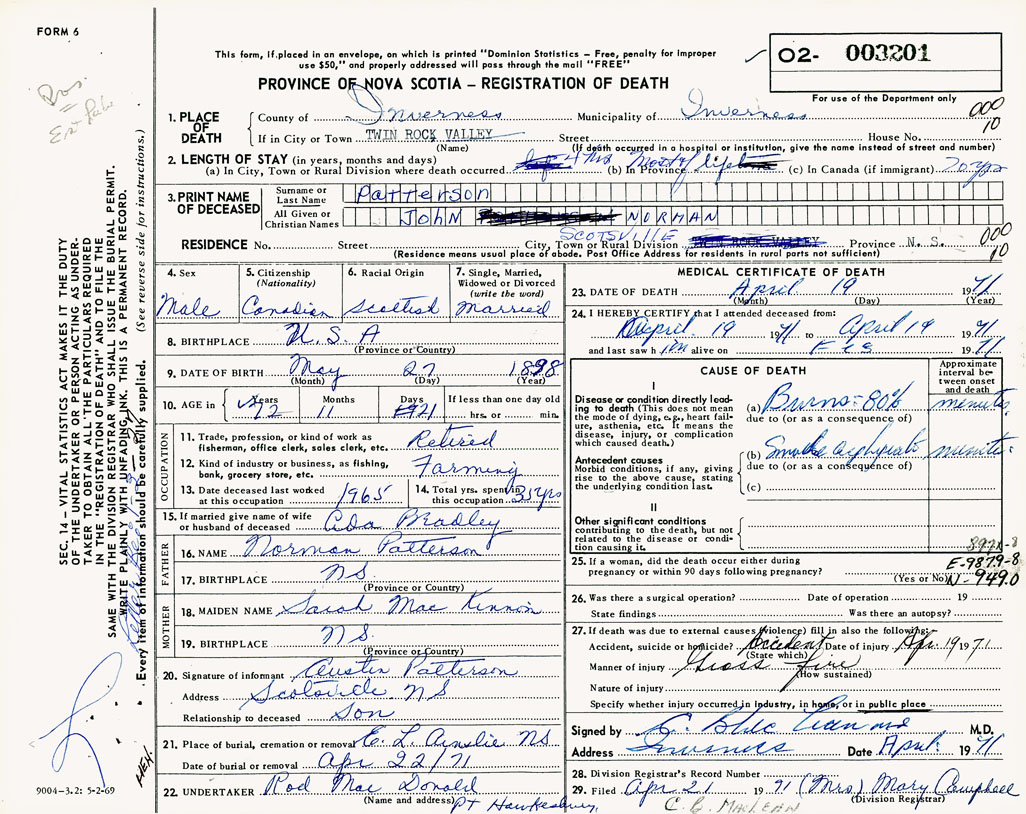 FORM 6
This form, if placed in an envelope, on which is printed "Dominion Statistics – Free, penalty for improper
use $50," and properly addressed will pass through the mail "FREE"
O2- 003201
For use of the Department only
PROVINCE OF NOVA SCOTIA – REGISTRATION OF DEATH
SEC. 14 – VITAL STATISTICS ACT MAKES IT THE DUTY
OF THE UNDERTAKER OR PERSON ACTING AS UNDER-
TAKER TO OBTAIN ALL THE PARTICULARS REQUIRED
IN THE "REGISTRATION OF DEATH" AND TO FILE THE
SAME WITH THE DIVISION REGISTRAR WHO SHALL ISSUE THE BURIAL PERMIT.
WRITE PLAINLY WITH UNFADING INK. THIS IS A PERMANENT RECORD.
Every item of information should be carefully supplied. (See reverse side for instructions.)
1. PLACE OF DEATH
County of Inverness Municipality of Inverness 000
If in City or Town TWIN ROCK VALLEY Street House No. 10
(Name) (If death occurred in a hospital or institution, give the name instead of street and number)
2. LENGTH OF STAY (in years, months and days)
(a) In City, Town or Rural Division where death occurred (b) In Province Most of life (c) In Canada (if immigrant) 70 yrs
3. PRINT NAME OF DECEASED
Surname or Last Name Patterson
All Given or Christian Names JOHN NORMAN
SCOTSVILLE
RESIDENCE No. Street City, Town or Rural Division TWIN ROCK VALLEY Province N. S. 000
(Residence means usual place of abode. Post Office Address for residents in rural parts not sufficient) 10
4. Sex
Male
5. Citizenship (Nationality)
Canadian
6. Racial Origin
Scottish
7. Single, Married, Widowed or Divorced (write the word)
Married
8. BIRTHPLACE U. S. A
(Province or Country)
9. DATE OF BIRTH May 27 1898
(Month) (Day) (Year)
10. AGE in Years Months Days If less than one day old
72 11 hrs. or min.
OCCUPATION
11. Trade, profession, or kind of work as
fisherman, office clerk, sales clerk, etc. Retired
12. Kind of industry or business, as fishing,
bank, grocery store, etc. Farming
13. Date deceased last worked
at this occupation 1965
14. Total yrs. spent in
this occupation 35 yrs
15. If married give name of wife
or husband of deceased Ada Bradley
FATHER
16. NAME Norman Patterson
17. BIRTHPLACE N S.
(Province or Country)
MOTHER
18. MAIDEN NAME Sarah Mac Kinnon
19. BIRTHPLACE N S.
(Province or Country)
20. Signature of informant Austin Patterson
Address Scotsville N S
Relationship to deceased Son
21. Place of burial, cremation or removal E. L. Ainslie NS
Date of burial or removal Apr 22/71
22. UNDERTAKER Rod Mac Donald
(Name and address) Pt Hawkesbury
9004-3.2: 5-2-69
MEDICAL CERTIFICATE OF DEATH
23. DATE OF DEATH April 19 1971
(Month) (Day) (Year)
24. I HEREBY CERTIFY that I attended deceased from:
April 19 1971 to April 19 1971
and last saw h im alive on Feb 1971
CAUSE OF DEATH
Approximate interval between onset and death
I
Disease or condition directly leading to death (This does not mean the mode of dying, e.g., heart failure, asthenia, etc. It means the disease, injury, or complication which caused death.)
(a) Burns - 80% minutes
due to (or as a consequence of)
Antecedent causes
Morbid conditions, if any, giving rise to the above cause, stating the underlying condition last.
(b) Smoke asphyxia minutes
due to (or as a consequence of)
(c)
II
Other significant conditions
contributing to the death, but not related to the disease or condition causing it.
25. If a woman, did the death occur either during E-9879-8
pregnancy or within 90 days following pregnancy? (Yes or No) N-949.0
26. Was there a surgical operation? Date of operation 19
State findings Was there an autopsy?
27. If death was due to external causes (violence) fill in also the following:
Accident, suicide or homicide? Accident Date of injury Apr. 19 1971
(State which)
Manner of injury Grass fire
(How sustained)
Nature of injury
Specify whether injury occurred in industry, in home, or in public place
Signed by M.D.
Address Inverness Date April 1971
28. Division Registrar's Record Number
29. Filed Apr 21 1971 (Mrs) Mary Campbell
(Division Registrar)
C. B. MacLean